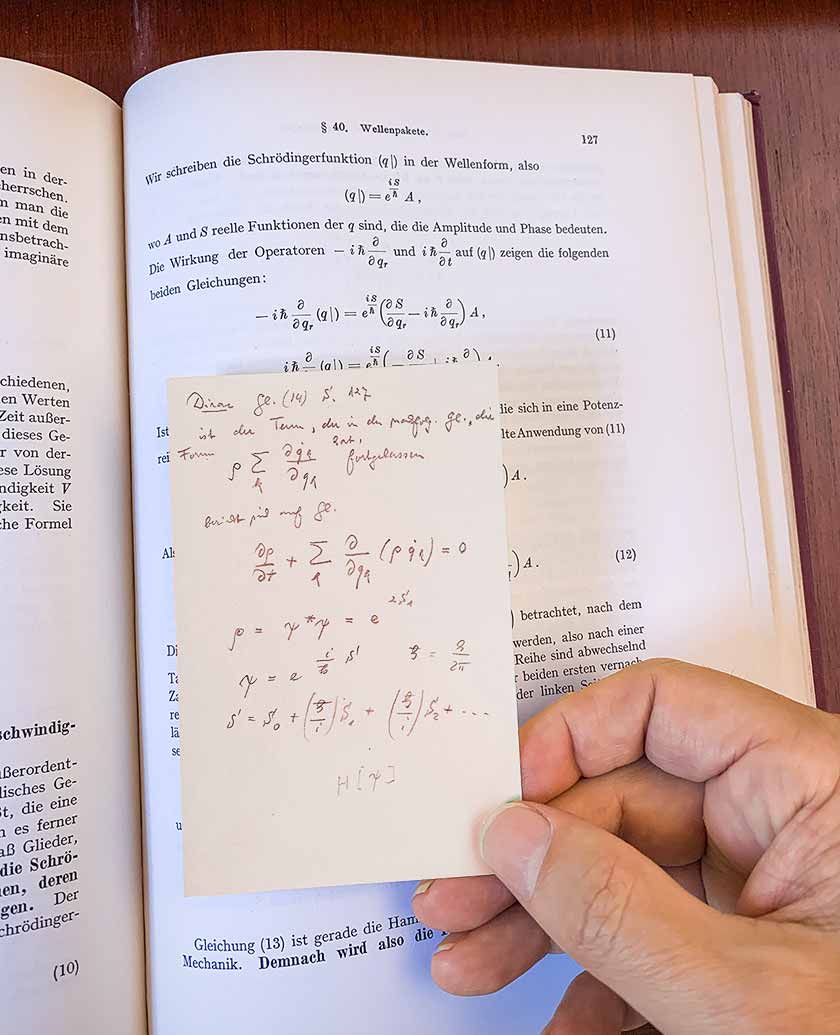 en in der-
herrschen.
n man die
en mit dem
nsbetrach-
imaginäre
chiedenen,
len Werten
Zeit außer-
dieses Ge-
r von der-
ese Lösung
ndigkeit V
gkeit. Sie
che Formel
schwindig-
ßerordent-
lisches Ge-
ßt, die eine
n es ferner
aß Glieder,
die Schrö-
nen, deren
gen. Der
chrödinger-
(10)
§ 40. Wellenpakete. 127
Wir schreiben die Schrödingerfunktion (q|) in der Wellenform, also
(q|) = e^{iS/ħ} A,
wo A und S reelle Funktionen der q sind, die die Amplitude und Phase bedeuten.
Die Wirkung der Operatoren − iħ ∂/∂q_r und iħ ∂/∂t auf (q|) zeigen die folgenden
beiden Gleichungen:
− iħ ∂/∂q_r (q|) = e^{iS/ħ} (∂S/∂q_r − iħ ∂/∂q_r) A,
(11)
iħ ∂/∂t (q|) = e^{iS/ħ} (− ∂S
Ist die sich in eine Potenz-
rei lte Anwendung von (11)
) A.
Al
) A. (12)
) betrachtet, nach dem
Di werden, also nach einer
Ta Reihe sind abwechselnd
Za r beiden ersten vernach-
re der linken
lä
se
u
Dirac Gl. (14) S. 127
ist der Term, der in der Gl., die
Form ρ Σ_k ∂q̇_k/∂q_k hat, fortgelassen
auf Gl.
∂ρ/∂t + Σ_k ∂/∂q_k (ρ q̇_k) = 0
ρ = ψ*ψ = e^{2S_1}
ψ = e^{i/ħ S} ħ = h/2π
S = S_0 + (ħ/i) S_1 + (ħ/i)² S_2 + ...
H[ψ]
Gleichung (13) ist gerade die Ham
Mechanik. Demnach wird also die